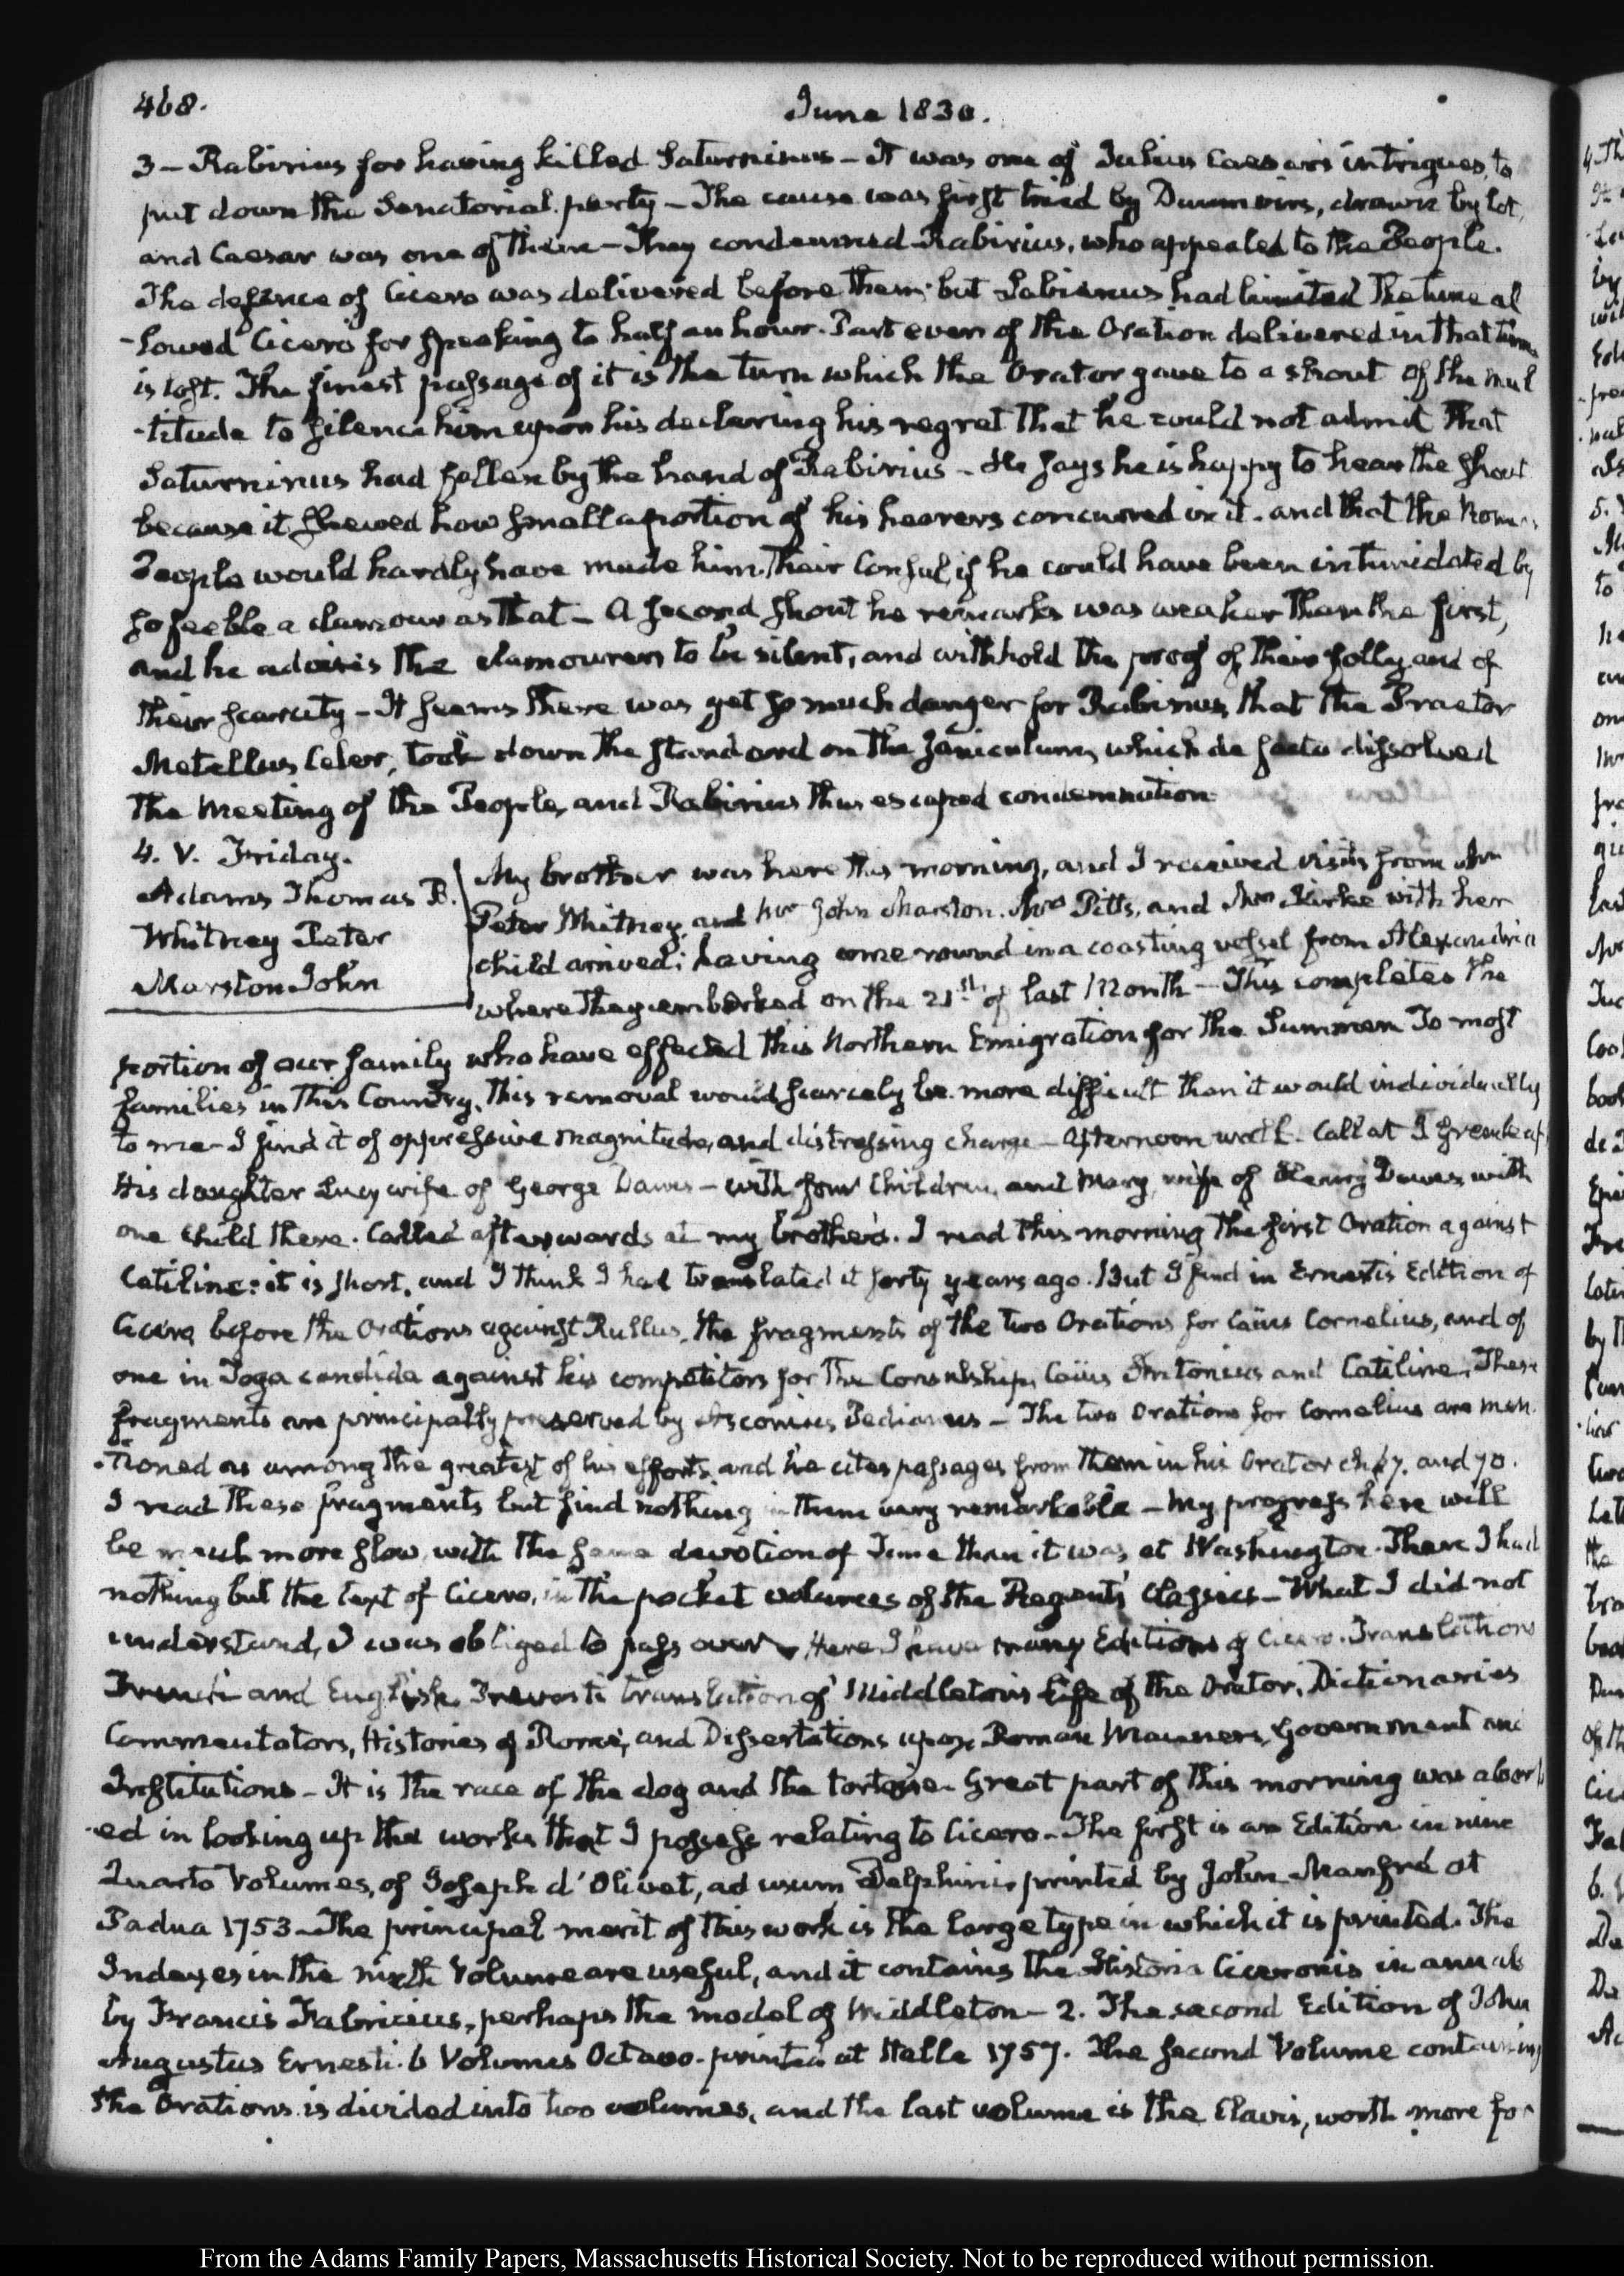 468.
June 1830.
3 - Rabirius for having killed Saturninus - It was one of Julius Caesar's intrigues, to
put down the Senatorial party - The cause was first tried by Duumvirs, drawn by lot,
and Caesar was one of them - They condemned Rabirius, who appealed to the People.
The defence of Cicero was delivered before them; but Labienus had limited the time al
-lowed Cicero for speaking to half an hour. Part even of the Oration delivered in that time
is lost. The finest passage of it is the turn which the Orator gave to a shout of the mul
-titude to silence him upon his declaring his regret that he could not admit that
Saturninus had fallen by the hand of Rabirius - He says he is happy to hear the shout
because it shewed how small a portion of his hearers concurred in it. and that the Roman
People would hardly have made him their Consul, if he could have been intimidated by
so feeble a clamour as that - A second shout he remarks was weaker than the first,
and he advises the clamourers to be silent, and withhold the proof of their folly and of
their scarcity - It seems there was yet so much danger for Rabirius, that the Praetor
Metellus Celer, took down the standard on the Janiculum, which de facto dissolved
the Meeting of the People, and Rabirius thus escaped condemnation
4. V. Friday.
Adams Thomas B.
Whitney Peter
Marston John
My brother was here this morning, and I received visits from Mr
Peter Whitney, and Mr John Marston. Mrs Pitts, and Mrs with her
child arrived; having come round in a coasting vessel from Alexandria
where they embarked on the 21st of last Month - This completes the
portion of our family who have effected this Northern Emigration for the Summer To most
families in this Country, this removal would scarcely be more difficult than it would individually
to me - I find it of oppressive magnitude, and distressing charge - Afternoon walk. Call at J Greenleaf
His daughter Lucy wife of George Dawes - with four Children, and Mary, wife of Dawes, with
one child there. Called afterwards at my brother's. I read this morning the first Oration against
Catiline: it is short, and I think I had translated it forty years ago. But I find in Ernesti's Edition of
Cicero before the Orations against Rullus, the fragments of the two Orations for Caius Cornelius, and of
one in Toga candida against his competitors for the Consulship, Caius Antonius and Catiline. These
fragments are principally preserved by Asconius Pedianus - The two Orations for Cornelius are men
-tioned as among the greatest of his efforts, and he cites passages from them in his Orator ch. 67. and 70.
I read these fragments but find nothing in them very remarkable - My progress here will
be much more slow, with the same devotion of Time than it was at Washington. There I had
nothing but the text of Cicero, in the pocket volumes of the Regent's Classics - What I did not
understand, I was obliged to pass over. Here I have many Editions of Cicero. Translations
French and English. Prevost's translation of Middleton's Life of the Orator, Dictionaries
Commentators, Histories of Rome, and Dissertations upon Roman Manners, Government and
Institutions - It is the race of the dog and the tortoise. Great part of this morning was absorb
-ed in looking up the works that I possess relating to Cicero - The first is an Edition in nine
Quarto Volumes, of Joseph d'Olivet, ad usum Delphini, printed by John Manfré at
Padua 1753 - The principal merit of this work is the large type in which it is printed. The
Indexes in the ninth Volume are useful, and it contains the Historia Ciceronis in annals
by Francis Fabricius, perhaps the model of Middleton - 2. The second Edition of John
Augustus Ernesti. 6 Volumes Octavo. printed at Halle 1757. The second Volume containing
the Orations is divided into two volumes, and the last volume is the Clavis, worth more for
From the Adams Family Papers, Massachusetts Historical Society. Not to be reproduced without permission.